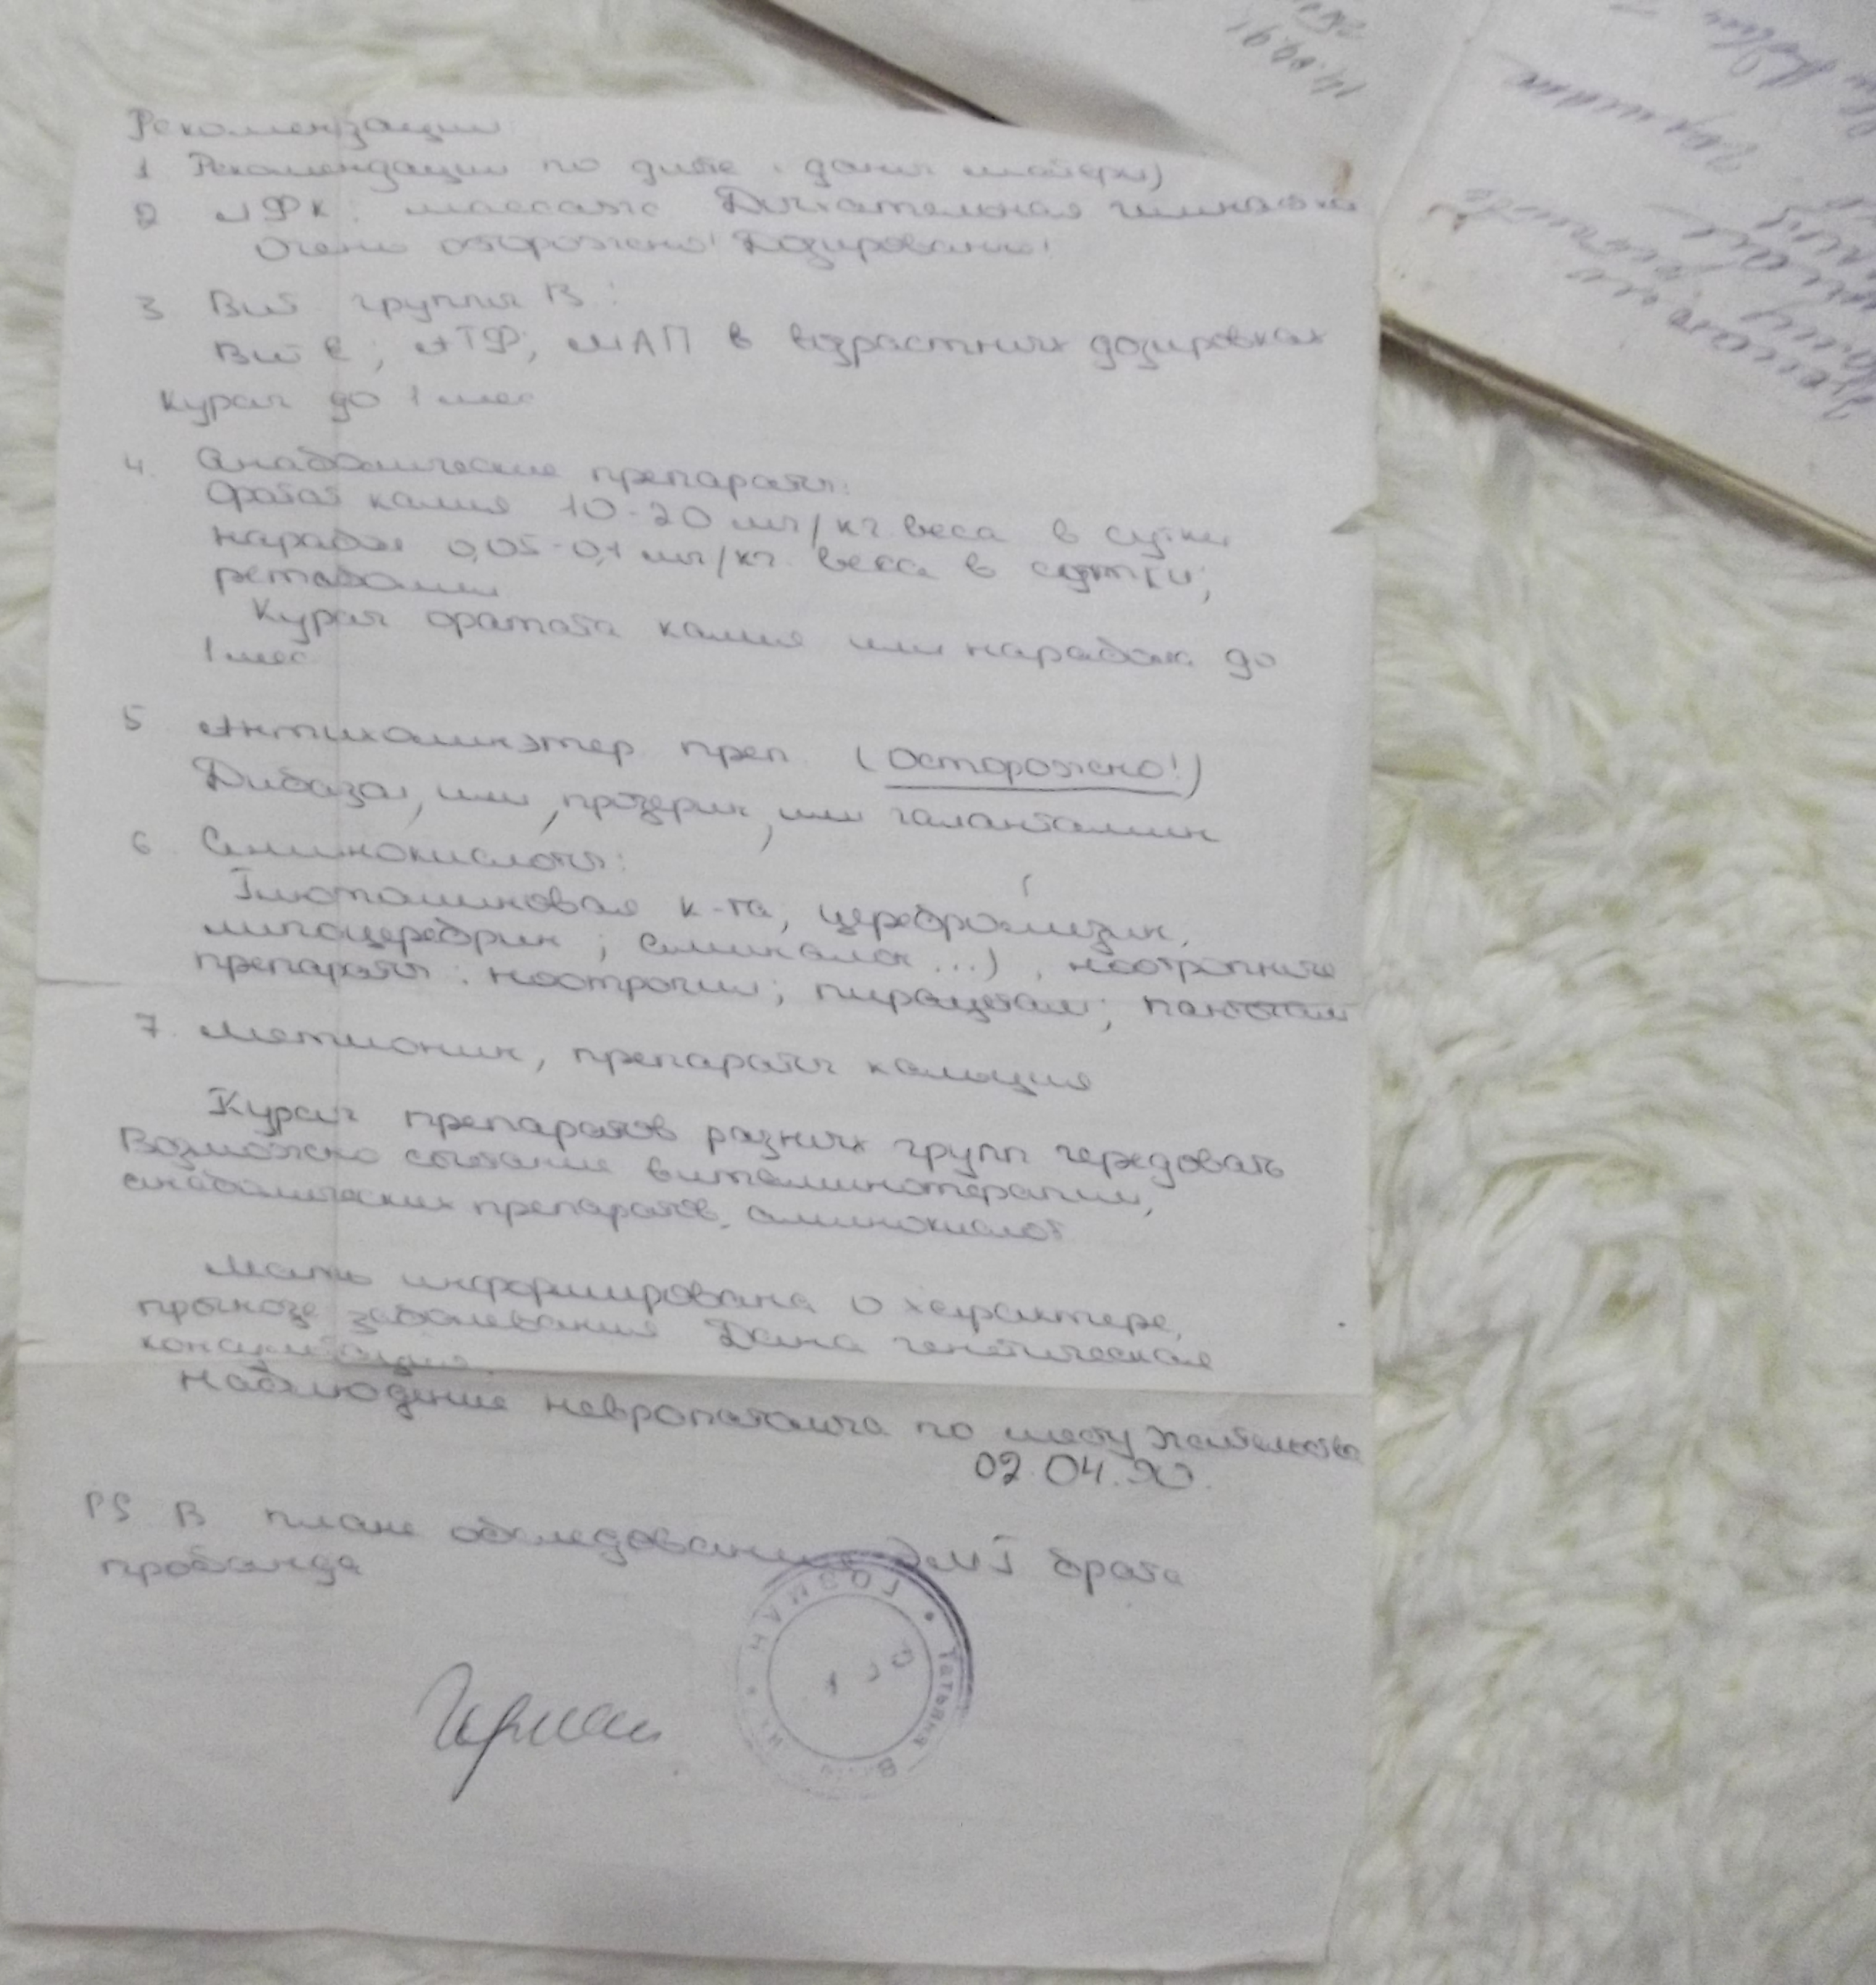 Рекомендации:
1 Рекомендации по диете (даны матери)
2 ЛФК: массаж Дыхательная гимнастика
Очень осторожно! Дозировано!
3 Вит группы В:
Вит Е; АТФ; МАП в возрастных дозировках
Курсы до 1 мес
4. Анаболические препараты:
Оротат калия 10-20 мг/кг веса в сутки
нарабол 0,05-0,1 мг/кг веса в сутки;
ретаболил
Курсы оротата калия или нарабола до
1 мес
5 Антихолинэстер преп. (Осторожно!)
Дибазол, или, прозерин, или галантамин
6 Аминокислоты:
Глютаминовая к-та; церебролизин,
липоцеребрин; аминалон...), ноотропные
препараты: ноотропил; пирацетам; пантогам
7. Метионин, препараты кальция
Курсы препаратов разных групп чередовать
Возможно сочетание витаминотерапии,
анаболических препаратов, аминокислот
Мать информирована о характере,
прогнозе заболевания Дана генетическая
консультация.
Наблюдение невропатолога по месту жительства
02.04.90.
PS В плане обследования ЭМГ брата
пробанда
ГОЗМАН • Татьяна В
14.09.91